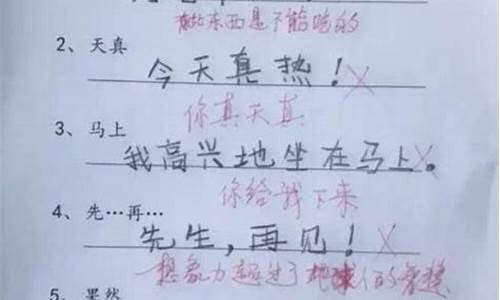 有些东西是不能吃的
2、天真
今天真热！
你真天真
3、马上
我高兴地坐在马上。
你给我下来
4、先…再…
先生，再见！
想象力超过了地球人的
5、果然